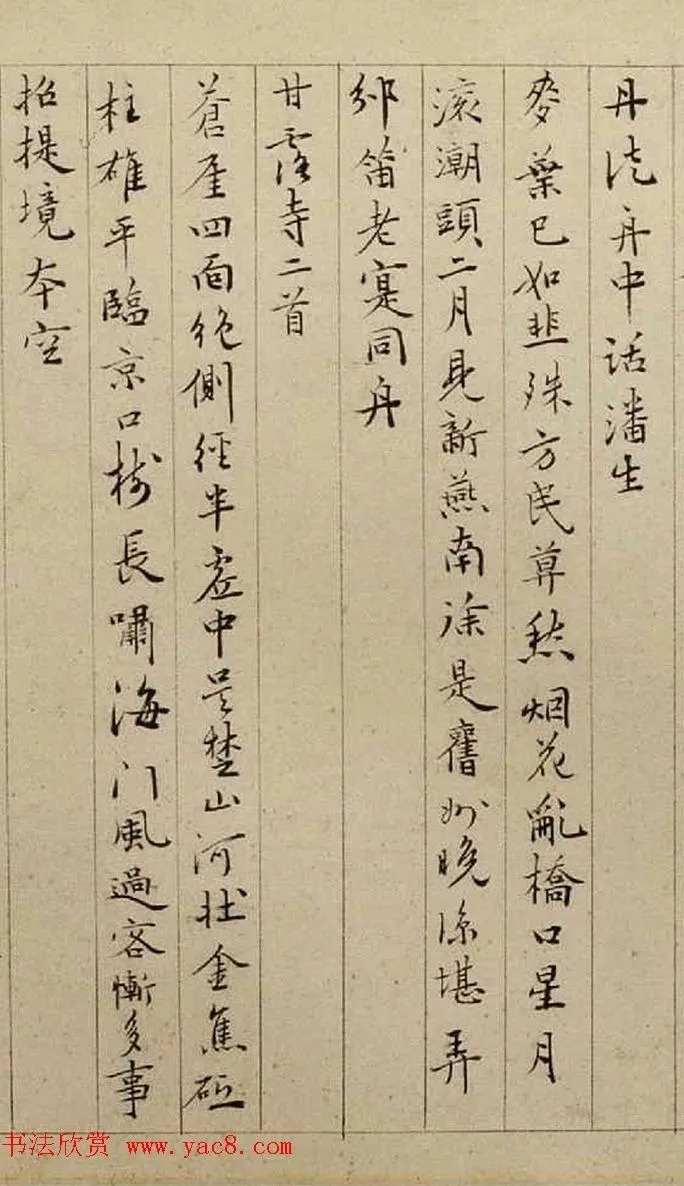 丹徒舟中話潘生
麥葉已如韭殊方民算愁烟花亂橋口星月
滾潮頭二月見新燕南徐是舊州晚涼堪弄
笛老寔同舟
甘露寺二首
蒼崖四面絶側徑半虛中吳楚山河壯金焦砥
柱雄平臨京口樹長嘯海門風過客慚多事
招提境本空
书法欣赏 www.yac8.com